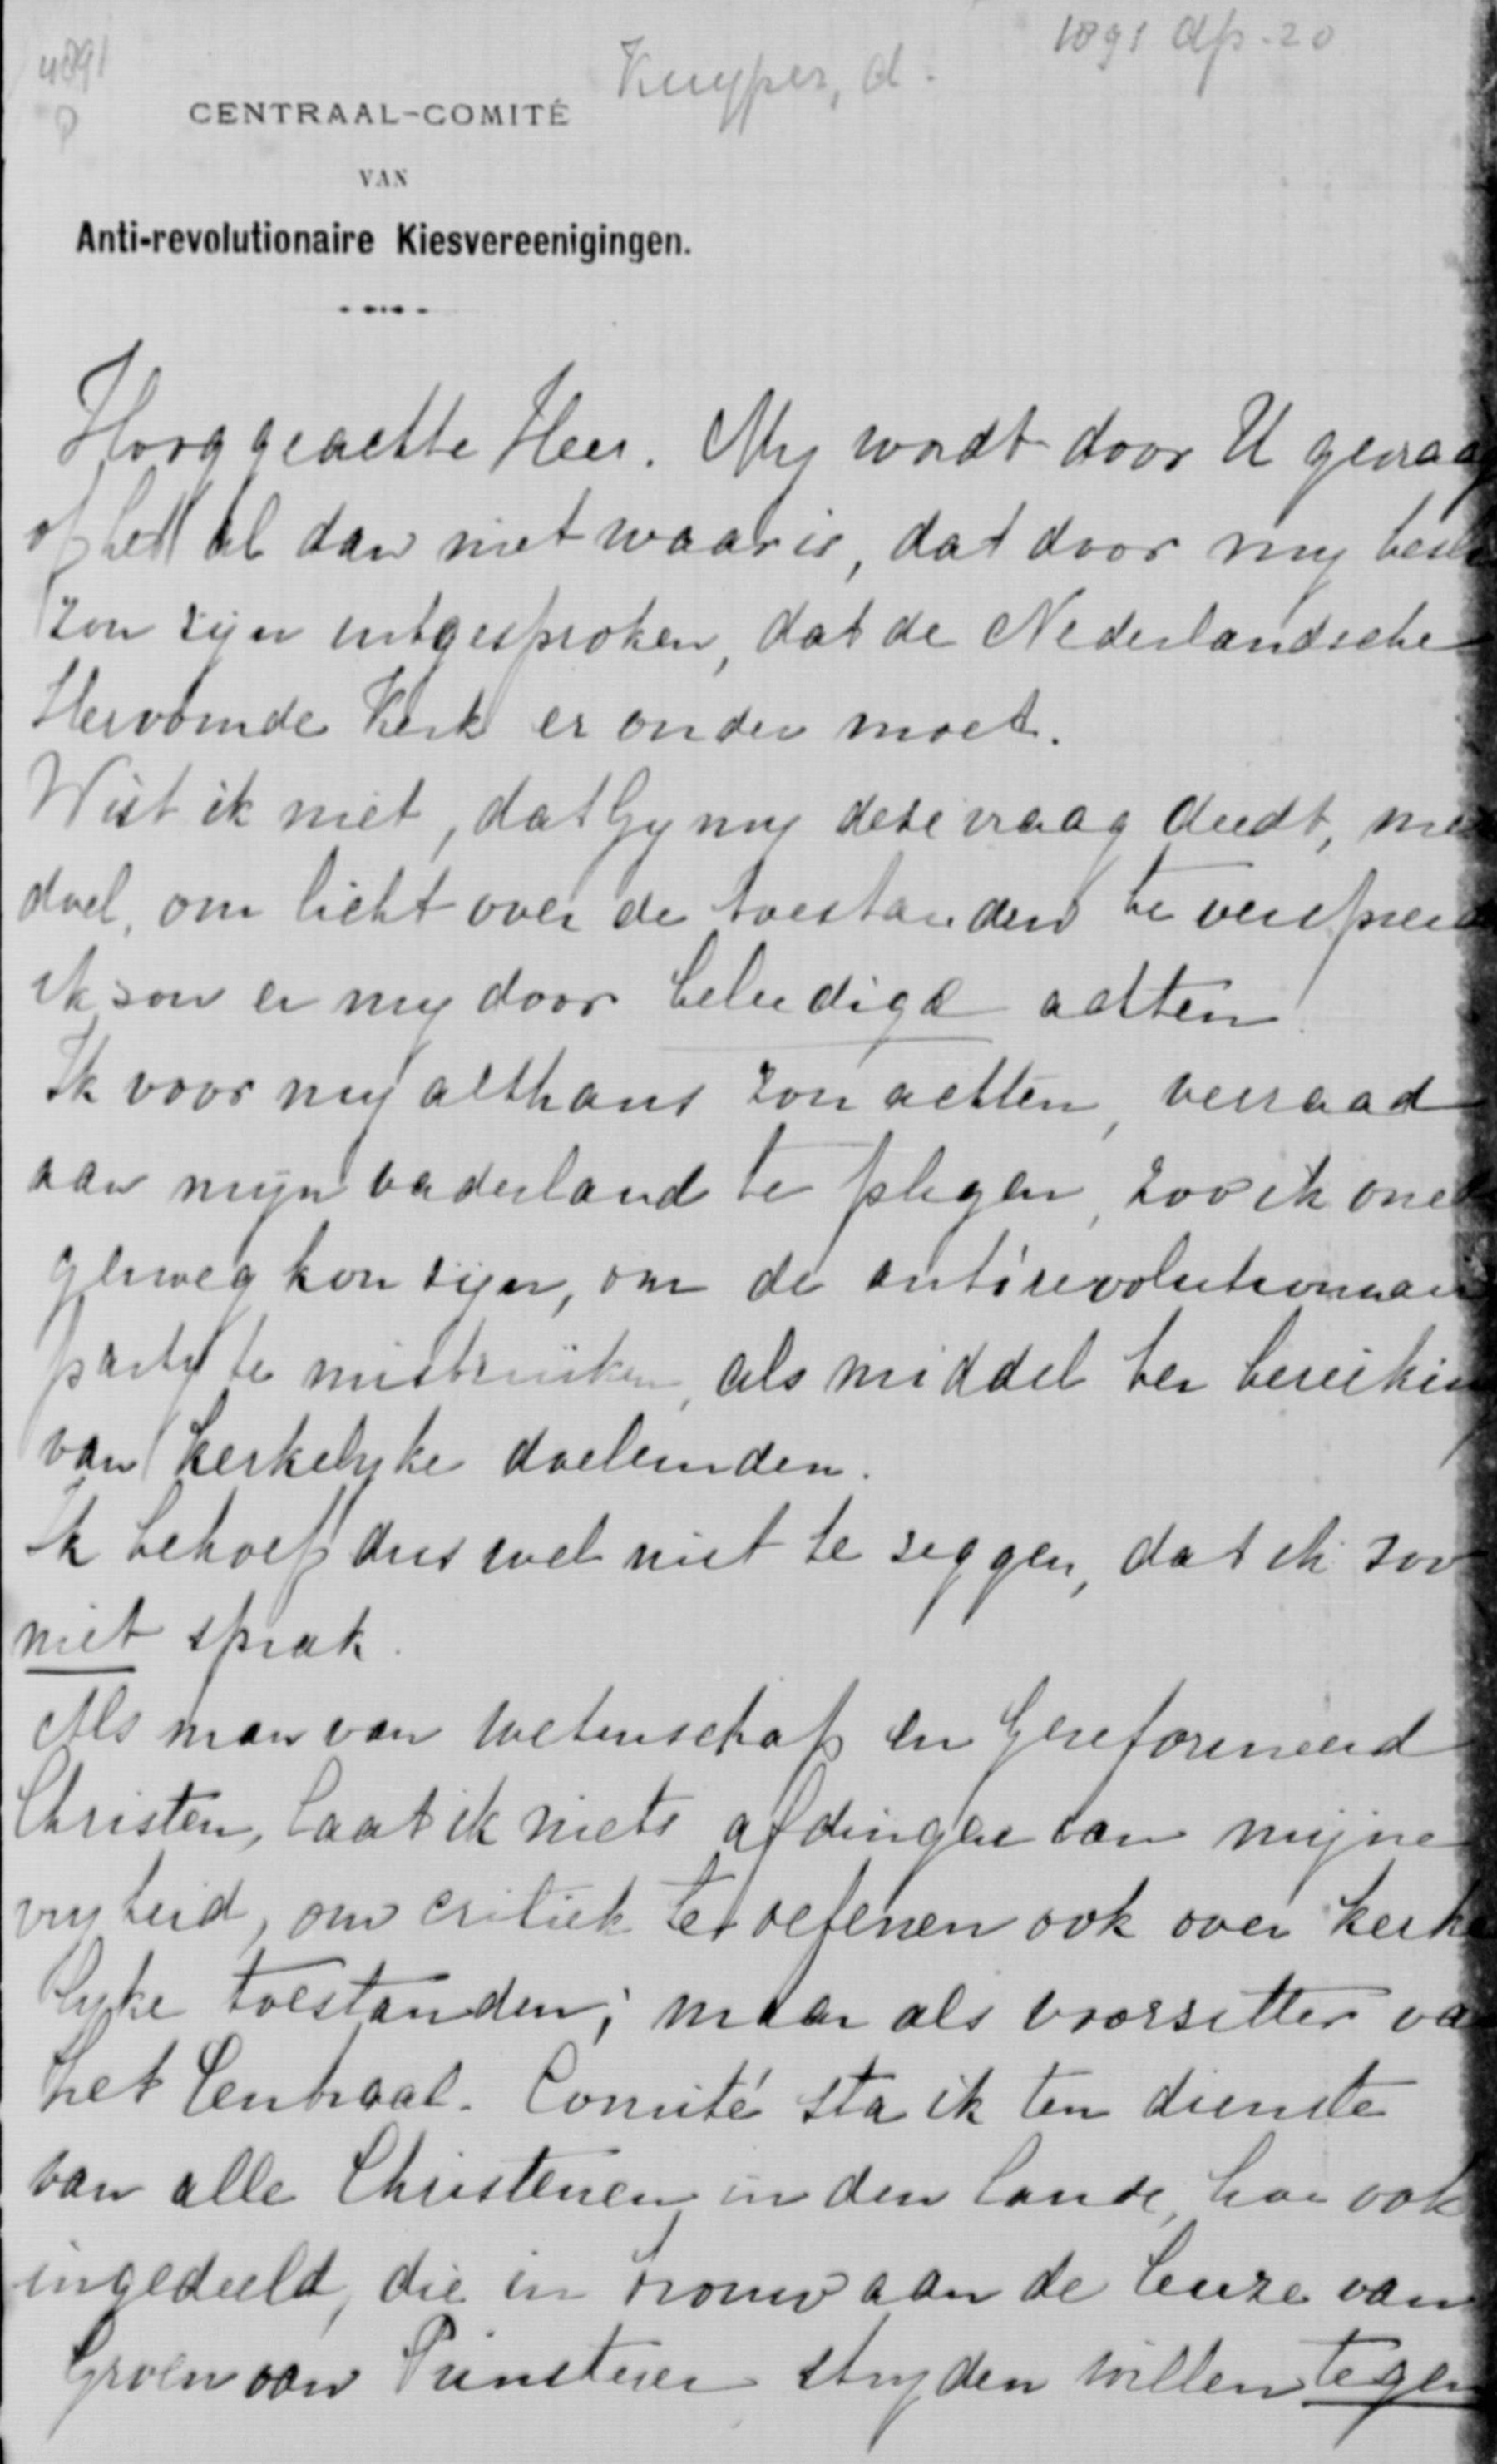 1891 Apr. 20
4891
Kuyper, A.
P
CENTRAAL-COMITÉ
VAN
Anti-revolutionaire Kiesvereenigingen.
Hooggeachte Heer. My wordt door U gevraag
of het al dan niet waar is, dat door my besl
zou zijn uitgesproken, dat de Nederlandsche
Hervormde Kerk er onder moet.
Wist ik niet, dat Gy my deze vraag deedt, me
doel, om licht over de toestanden te verspreid
ik zou er my door beleedigd achten.
Ik voor my althans zou achten, verraad
aan mijn vaderland te plegen, zoo ik one
genoeg kon zijn, om de antirevolutionair
party te misbruiken, als middel ter bereikin
van kerkelyke doeleinden.
Ik behoef dus wel niet te zeggen, dat ik zoo
niet sprak.
Als man van wetenschap en Gereformeerd
Christen, laat ik niets afdingen van mijne
vryheid, om critiek te oefenen ook over kerke
lyke toestanden; maar als voorzitter va
het Centraal-Comité sta ik ten dienste
van alle Christenen in den lande, hoe ook
ingedeeld, die in trouw aan de leuze van
Groen van Prinsterer stryden willen tegen